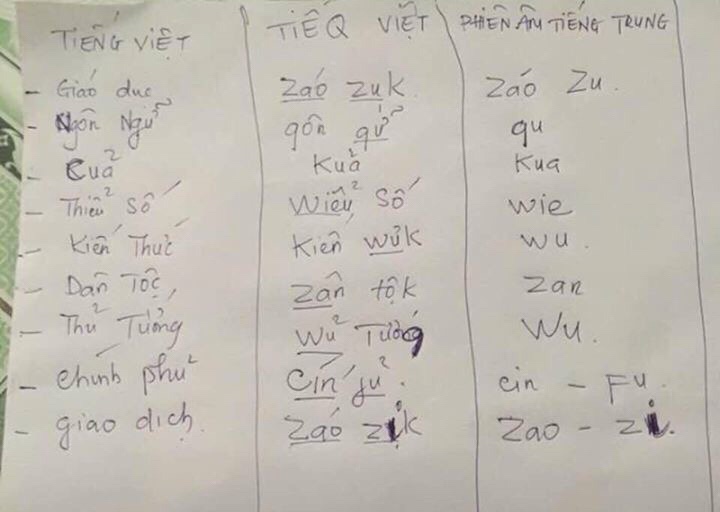 TIẾNG VIỆT TIẾQ VIỆT PHIÊN ÂM TIẾNG TRUNG
- Giáo dục Záo zuk. Záo Zu.
- Ngôn Ngữ qôn qữ qu
- Của Kuả Kua
- Thiểu Số Wiểu Số Wie
- Kiến Thức Kiến wúk wu.
- Dân Tộc, Zân tộk Zan
- Thủ Tướng Wủ Tướng Wu.
- Chính phủ Cín fủ. cin - Fu.
- giao dịch. Zao zịk Zao - zi.